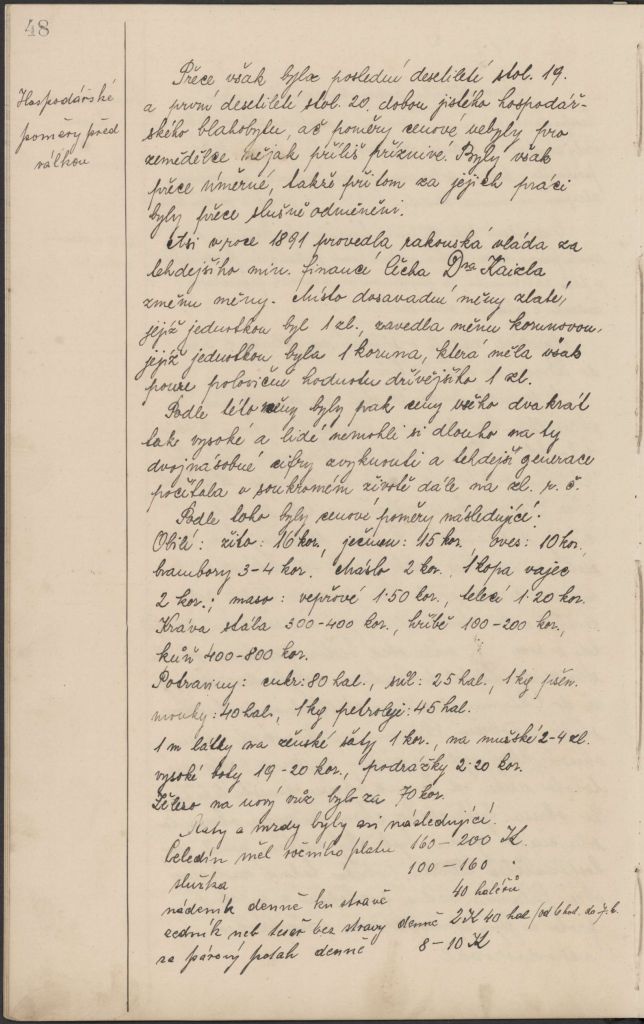 48
Hospodářské
poměry před
válkou
Přece však byla poslední desetiletí stol. 19.
a první desetiletí stol. 20. dobou jistého hospodář-
ského blahobytu, ač poměry cenové nebyly pro
zemědělce nějak příliš příznivé. Byly však
přece úměrné, takže přitom za jejich práci
byly přece slušně odměněni.
Asi v roce 1891 provedla rakouská vláda za
tehdejšího min. financí Čecha Dra Kaizla
změnu měny. Místo dosavadní měny zlaté,
jejíž jednotkou byl 1 zl., zavedla měnu korunovou,
jejíž jednotkou byla 1 koruna, která měla však
pouze poloviční hodnotu dřívějšího 1 zl.
Podle této měny byly pak ceny všeho dvakrát
tak vysoké a lidé nemohli si dlouho na ty
dvojnásobné cifry zvyknouti a tehdejší generace
počítala v soukromém životě dále na zl. r. č.
Podle toho byly cenové poměry následující:
Obilí: žito: 16 kor., ječmen: 15 kor., oves: 10 kor.,
brambory 3-4 kor. Máslo 2 kor., 1 kopa vajec
2 kor.; maso: vepřové 1·50 kor., telecí 1·20 kor.
Kráva stála 300-400 kor., hříbě 100-200 kor.,
kůň 400-800 kor.
Potraviny: cukr: 80 hal., sůl: 25 hal., 1 kg pšen.
mouky: 40 hal., 1 kg petroleje: 45 hal.
1 m látky na ženské šaty 1 kor., na mužské 2-4 zl.
vysoké boty 19-20 kor., podrážky 2·20 kor.
Železo na nový vůz bylo za 70 kor.
Platy a mzdy byly asi následující:
Čeledín měl ročního platu 160-200 K.
služka 100-160 "
nádeník denně ku stravě 40 haléřů
zedník neb tesař bez stravy denně 2 K 40 hal (od 6 hod. do 7. h.
za párový potah denně 8-10 K